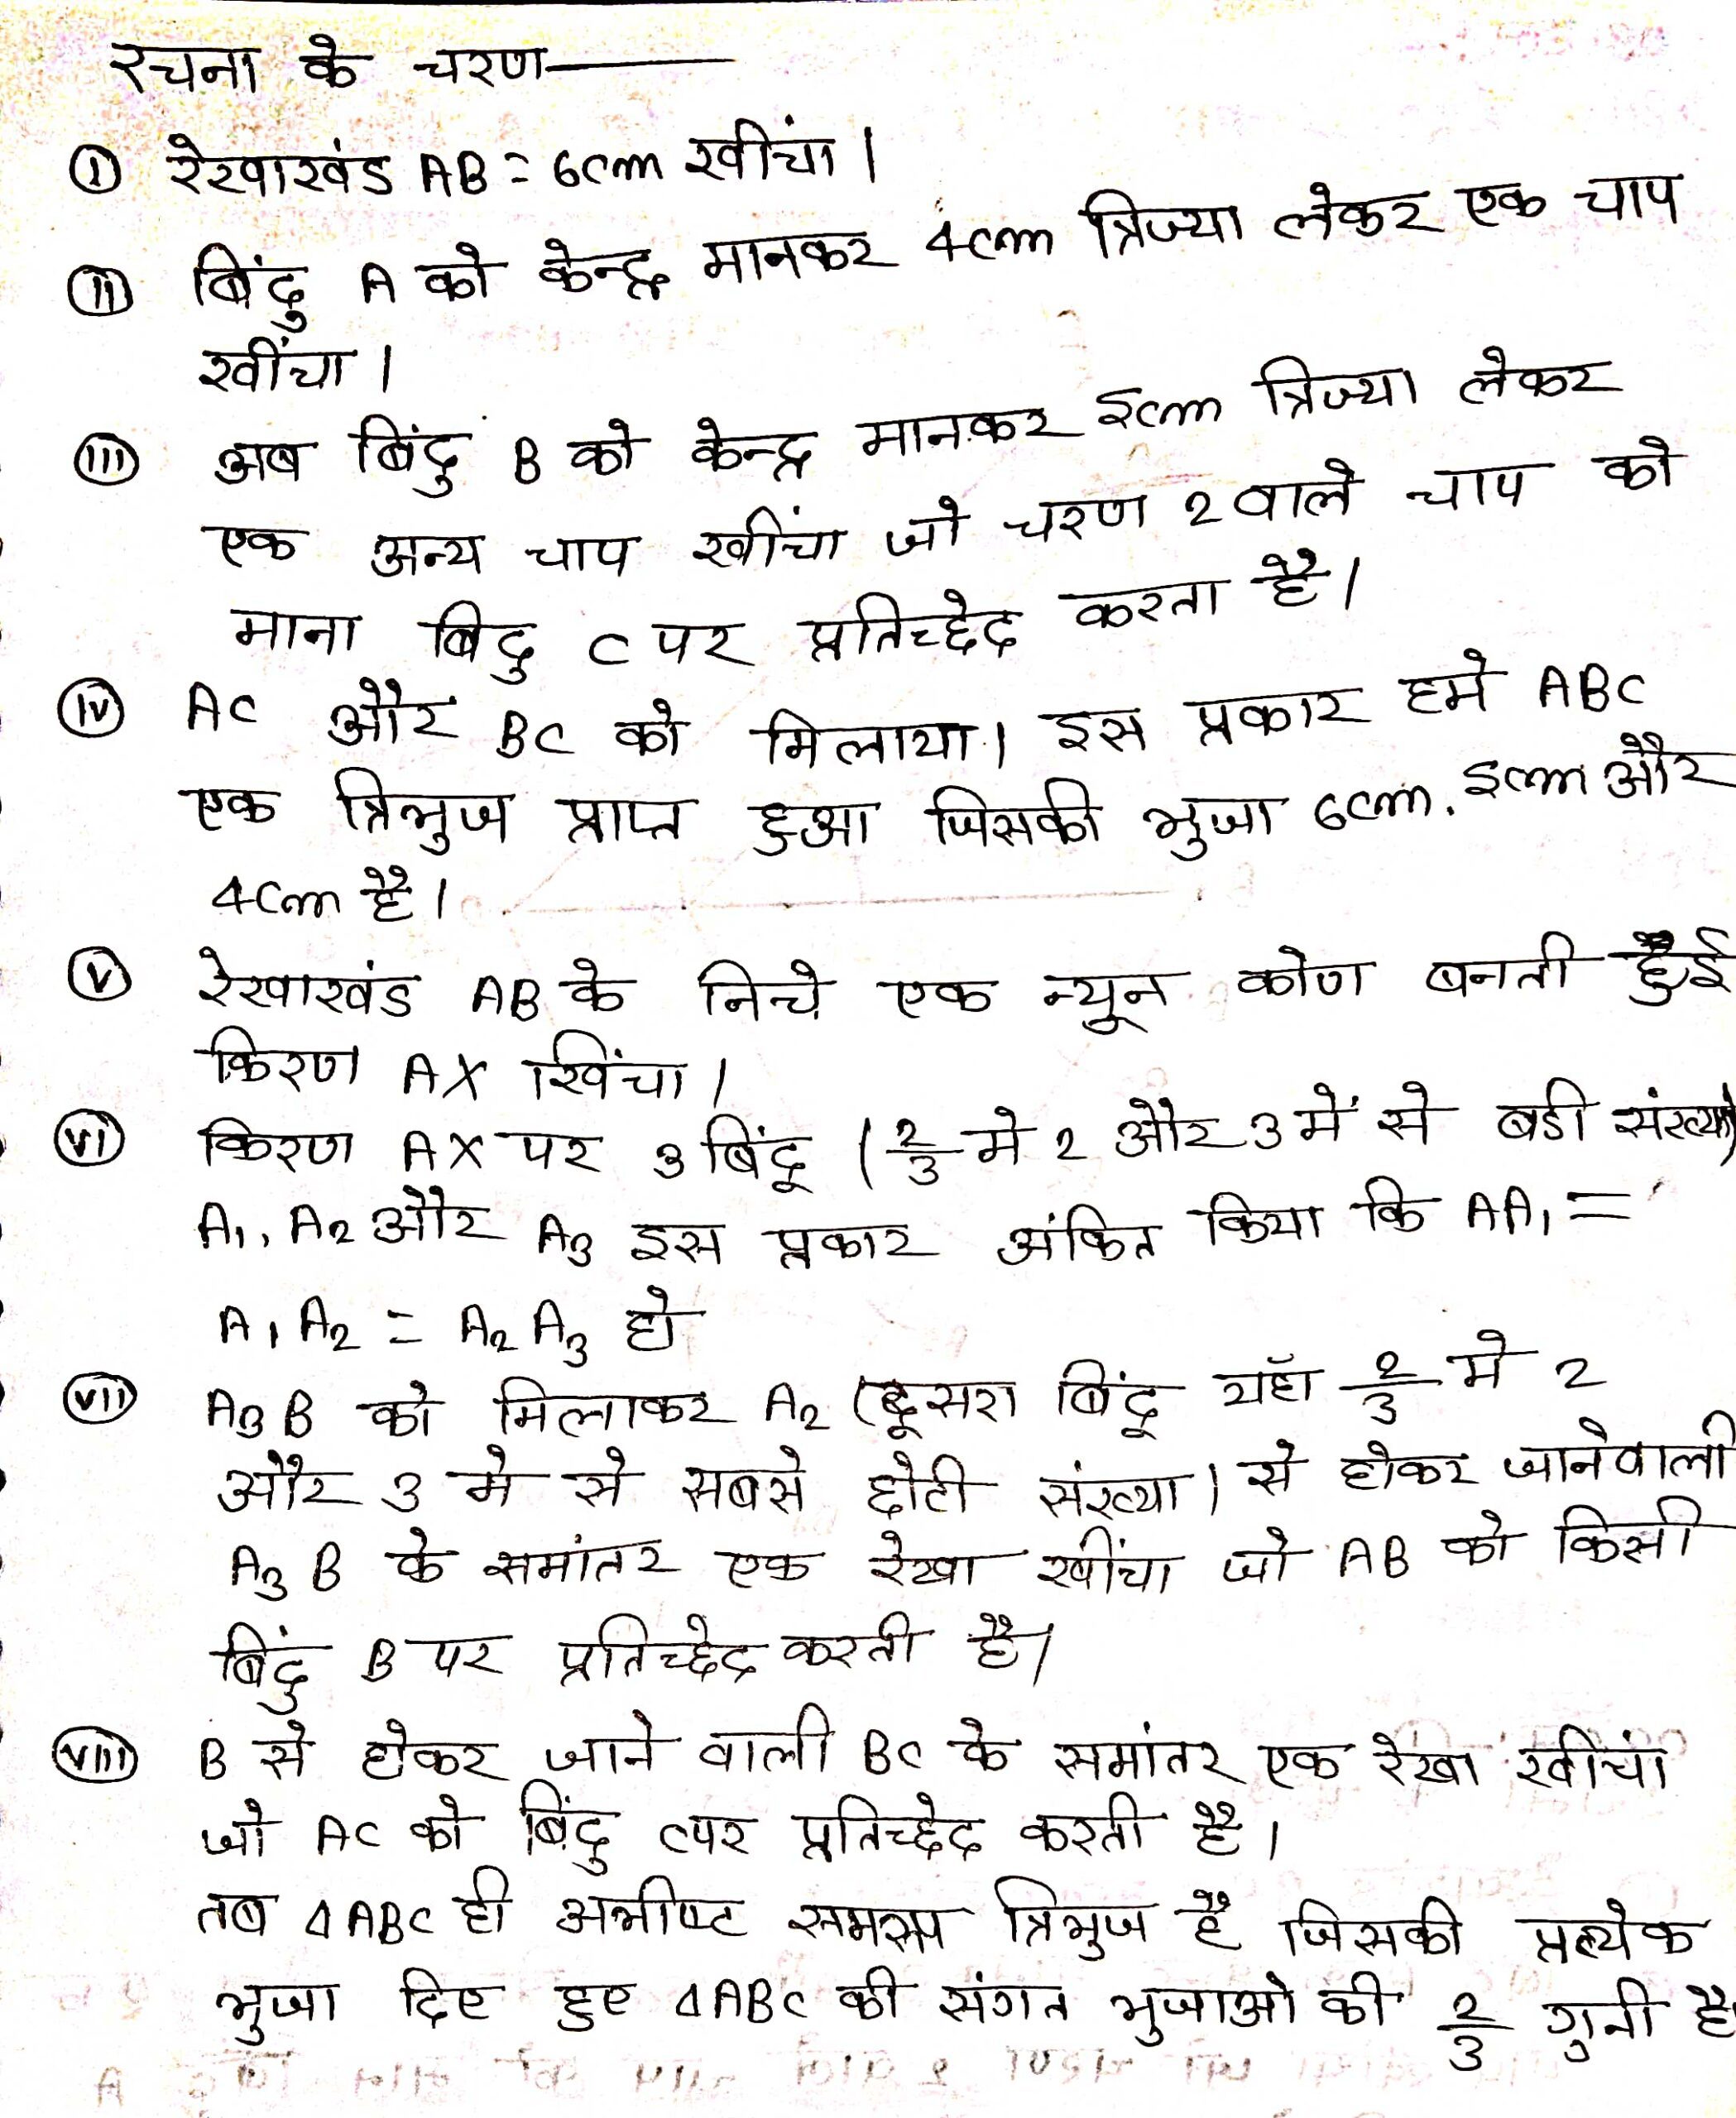 रचना के चरण —
(i) रेखाखंड AB = 6cm खींचा।
(ii) बिंदु A को केन्द्र मानकर 4cm त्रिज्या लेकर एक चाप
खींचा।
(iii) अब बिंदु B को केन्द्र मानकर 5cm त्रिज्या लेकर
एक अन्य चाप खींचा जो चरण 2 वाले चाप को
माना बिंदु C पर प्रतिच्छेद करता है।
(iv) AC और BC को मिलाया। इस प्रकार हमे ABC
एक त्रिभुज प्राप्त हुआ जिसकी भुजा 6cm, 5cm और
4cm है।
(v) रेखाखंड AB के निचे एक न्यून कोण बनती हुई
किरण AX खिंचा।
(vi) किरण AX पर 3 बिंदू (2/3 मे 2 और 3 में से बडी संख्या)
A₁, A₂ और A₃ इस प्रकार अंकित किया कि AA₁ =
A₁A₂ = A₂A₃ हो
(vii) A₃B को मिलाकर A₂ (दूसरा बिंदू यहाँ 2/3 मे 2
और 3 मे से सबसे छोटी संख्या) से होकर जानेवाली
A₃B के समांतर एक रेखा खींचा जो AB को किसी
बिंदु B पर प्रतिच्छेद करती है।
(viii) B से होकर जाने वाली BC के समांतर एक रेखा खींचा
जो AC को बिंदु C पर प्रतिच्छेद करती है।
तब ΔABC ही अभीष्ट समरूप त्रिभुज है जिसकी प्रत्येक
भुजा दिए हुए ΔABC की संगत भुजाओ की 2/3 गुनी है